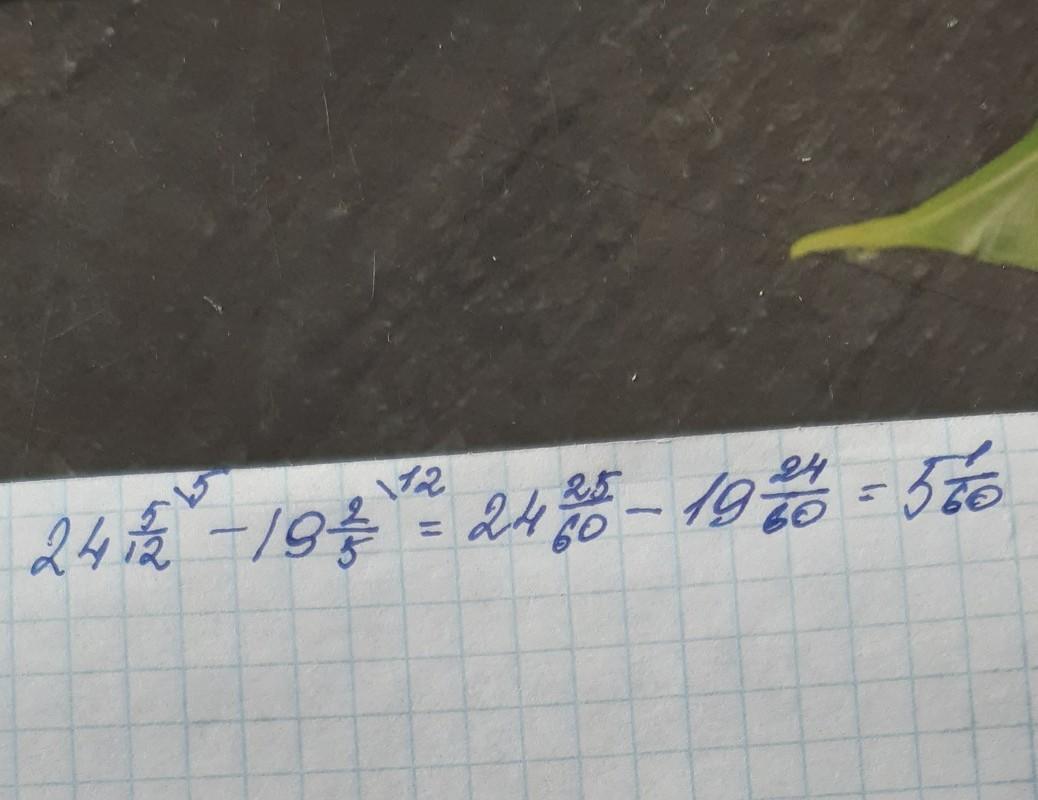 24 5/12 \5 - 19 2/5 \12 = 24 25/60 - 19 24/60 = 5 1/60